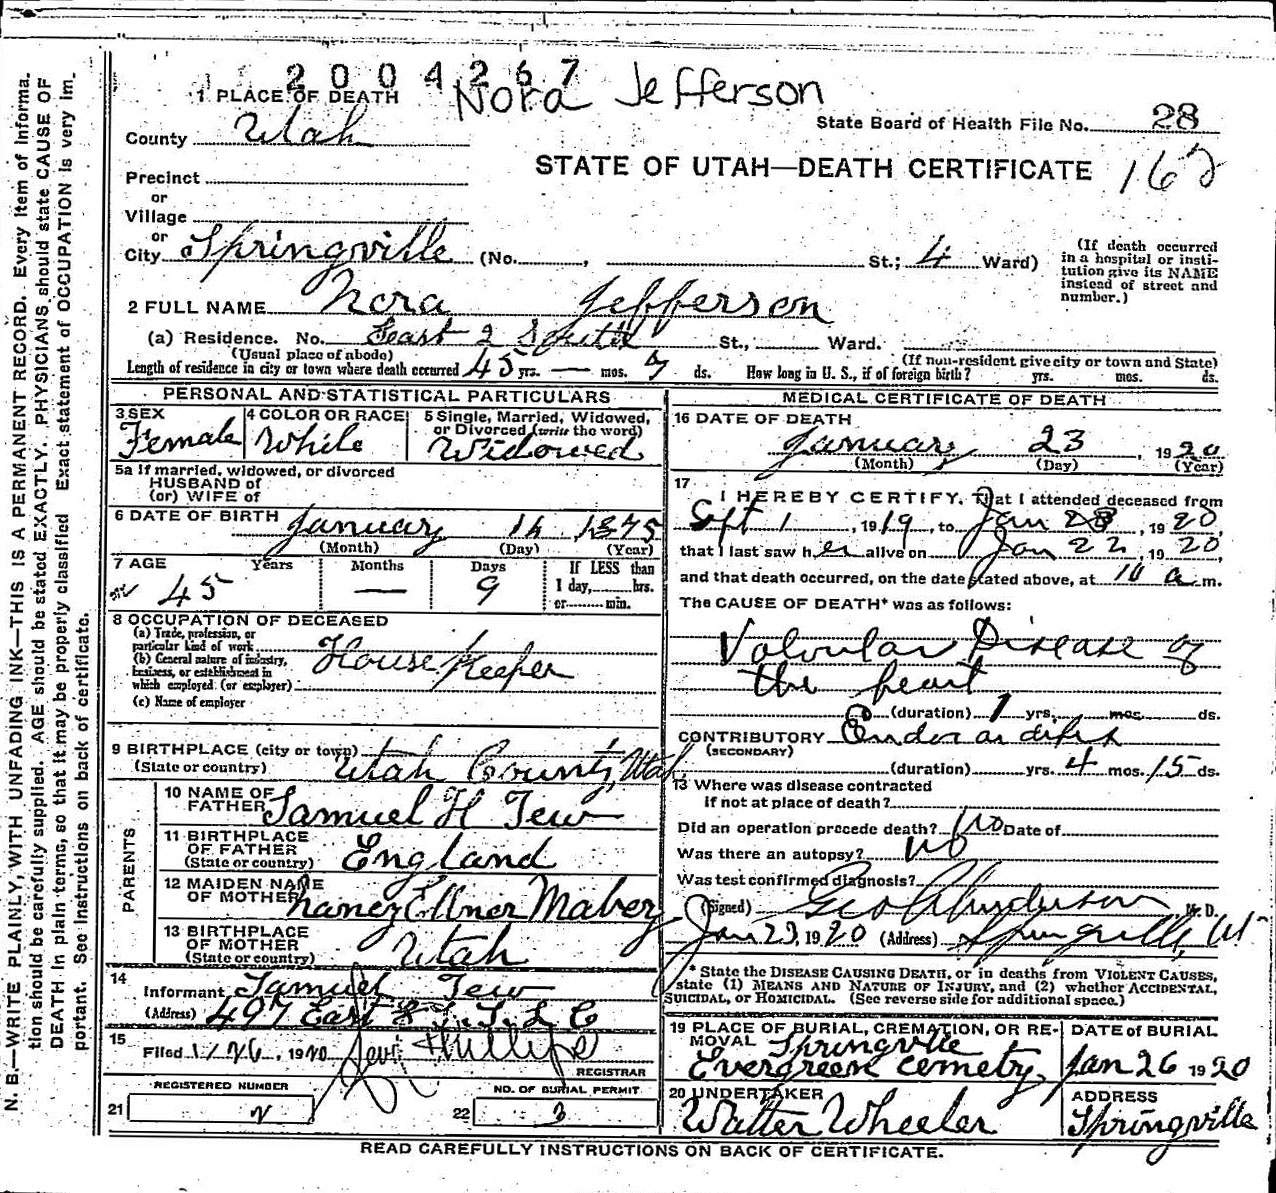 2004267
Nora Jefferson
1 PLACE OF DEATH
County Utah
State Board of Health File No. 28
STATE OF UTAH—DEATH CERTIFICATE 162
Precinct
or
Village
or
City Springville (No. , St.; 4 Ward)
(If death occurred in a hospital or insti-
tution give its NAME
instead of street and
number.)
2 FULL NAME Nora Jefferson
(a) Residence. No. East 2 South St., Ward.
(Usual place of abode) (If non-resident give city or town and State)
Length of residence in city or town where death occurred 45 yrs. — mos. 9 ds. How long in U. S., if of foreign birth? yrs. mos. ds.
PERSONAL AND STATISTICAL PARTICULARS
3 SEX
Female
4 COLOR OR RACE
White
5 Single, Married, Widowed,
or Divorced (write the word)
Widowed
5a If married, widowed, or divorced
HUSBAND of
(or) WIFE of
6 DATE OF BIRTH January 14 1875
(Month) (Day) (Year)
7 AGE Years Months Days If LESS than
45 — 9 1 day, hrs.
or min.
8 OCCUPATION OF DECEASED
(a) Trade, profession, or
particular kind of work
(b) General nature of industry,
business, or establishment in
which employed (or employer)
House Keeper
(c) Name of employer
9 BIRTHPLACE (city or town)
(State or country) Utah County, Utah
PARENTS
10 NAME OF
FATHER Samuel H Tew
11 BIRTHPLACE
OF FATHER
(State or country) England
12 MAIDEN NAME
OF MOTHER Nancy Ellner Maber
13 BIRTHPLACE
OF MOTHER
(State or country) Utah
14
Informant Samuel Tew
(Address) 497 East
15
Filed 1/26, 1920 Levi Phillips
REGISTRAR
REGISTERED NUMBER
21 2
NO. OF BURIAL PERMIT
22 3
MEDICAL CERTIFICATE OF DEATH
16 DATE OF DEATH
January 23, 1920
(Month) (Day) (Year)
17
I HEREBY CERTIFY, That I attended deceased from
Sept 1, 1919, to Jan 23, 1920
that I last saw her alive on Jan 22, 1920,
and that death occurred, on the date stated above, at 10 a m.
The CAUSE OF DEATH* was as follows:
Valvular Disease of
the heart
(duration) 1 yrs. mos. ds.
CONTRIBUTORY Endocarditis
(SECONDARY)
(duration) yrs. 4 mos. 15 ds.
18 Where was disease contracted
if not at place of death?
Did an operation precede death? No Date of
Was there an autopsy? No
Was test confirmed diagnosis?
(Signed) Geo Anderson M. D.
Jan 23, 1920 (Address) Springville, Ut
* State the DISEASE CAUSING DEATH, or in deaths from VIOLENT CAUSES,
state (1) MEANS AND NATURE OF INJURY, and (2) whether ACCIDENTAL,
SUICIDAL, or HOMICIDAL. (See reverse side for additional space.)
19 PLACE OF BURIAL, CREMATION, OR RE-
MOVAL Springville
Evergreen Cemetry
DATE of BURIAL
Jan 26 1920
20 UNDERTAKER
Walter Wheeler
ADDRESS
Springville
READ CAREFULLY INSTRUCTIONS ON BACK OF CERTIFICATE.
N. B.—WRITE PLAINLY, WITH UNFADING INK—THIS IS A PERMANENT RECORD. Every item of informa-
tion should be carefully supplied. AGE should be stated EXACTLY. PHYSICIANS should state CAUSE OF
DEATH in plain terms, so that it may be properly classified Exact statement of OCCUPATION is very im-
portant. See instructions on back of certificate.